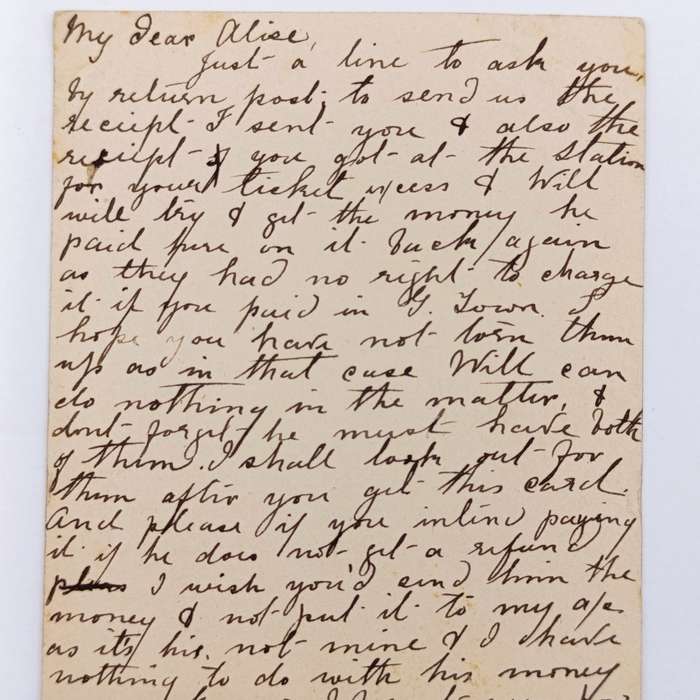 My Dear Alise,
Just a line to ask you,
by return post, to send us the
receipt I sent you & also the
receipt you got at the Station
for your ticket excess & Will
will try & get the money he
paid here on it back again
as they had no right to charge
it if you paid in G. Town. I
hope you have not torn them
up as in that case Will can
do nothing in the matter, &
dont forget he must have both
of them. I shall look out for
them after you get this card.
And please if you intend paying
it if he does not get a refund
I wish you'd send him the
money & not put it to my a/c
as its his, not mine & I have
nothing to do with his money